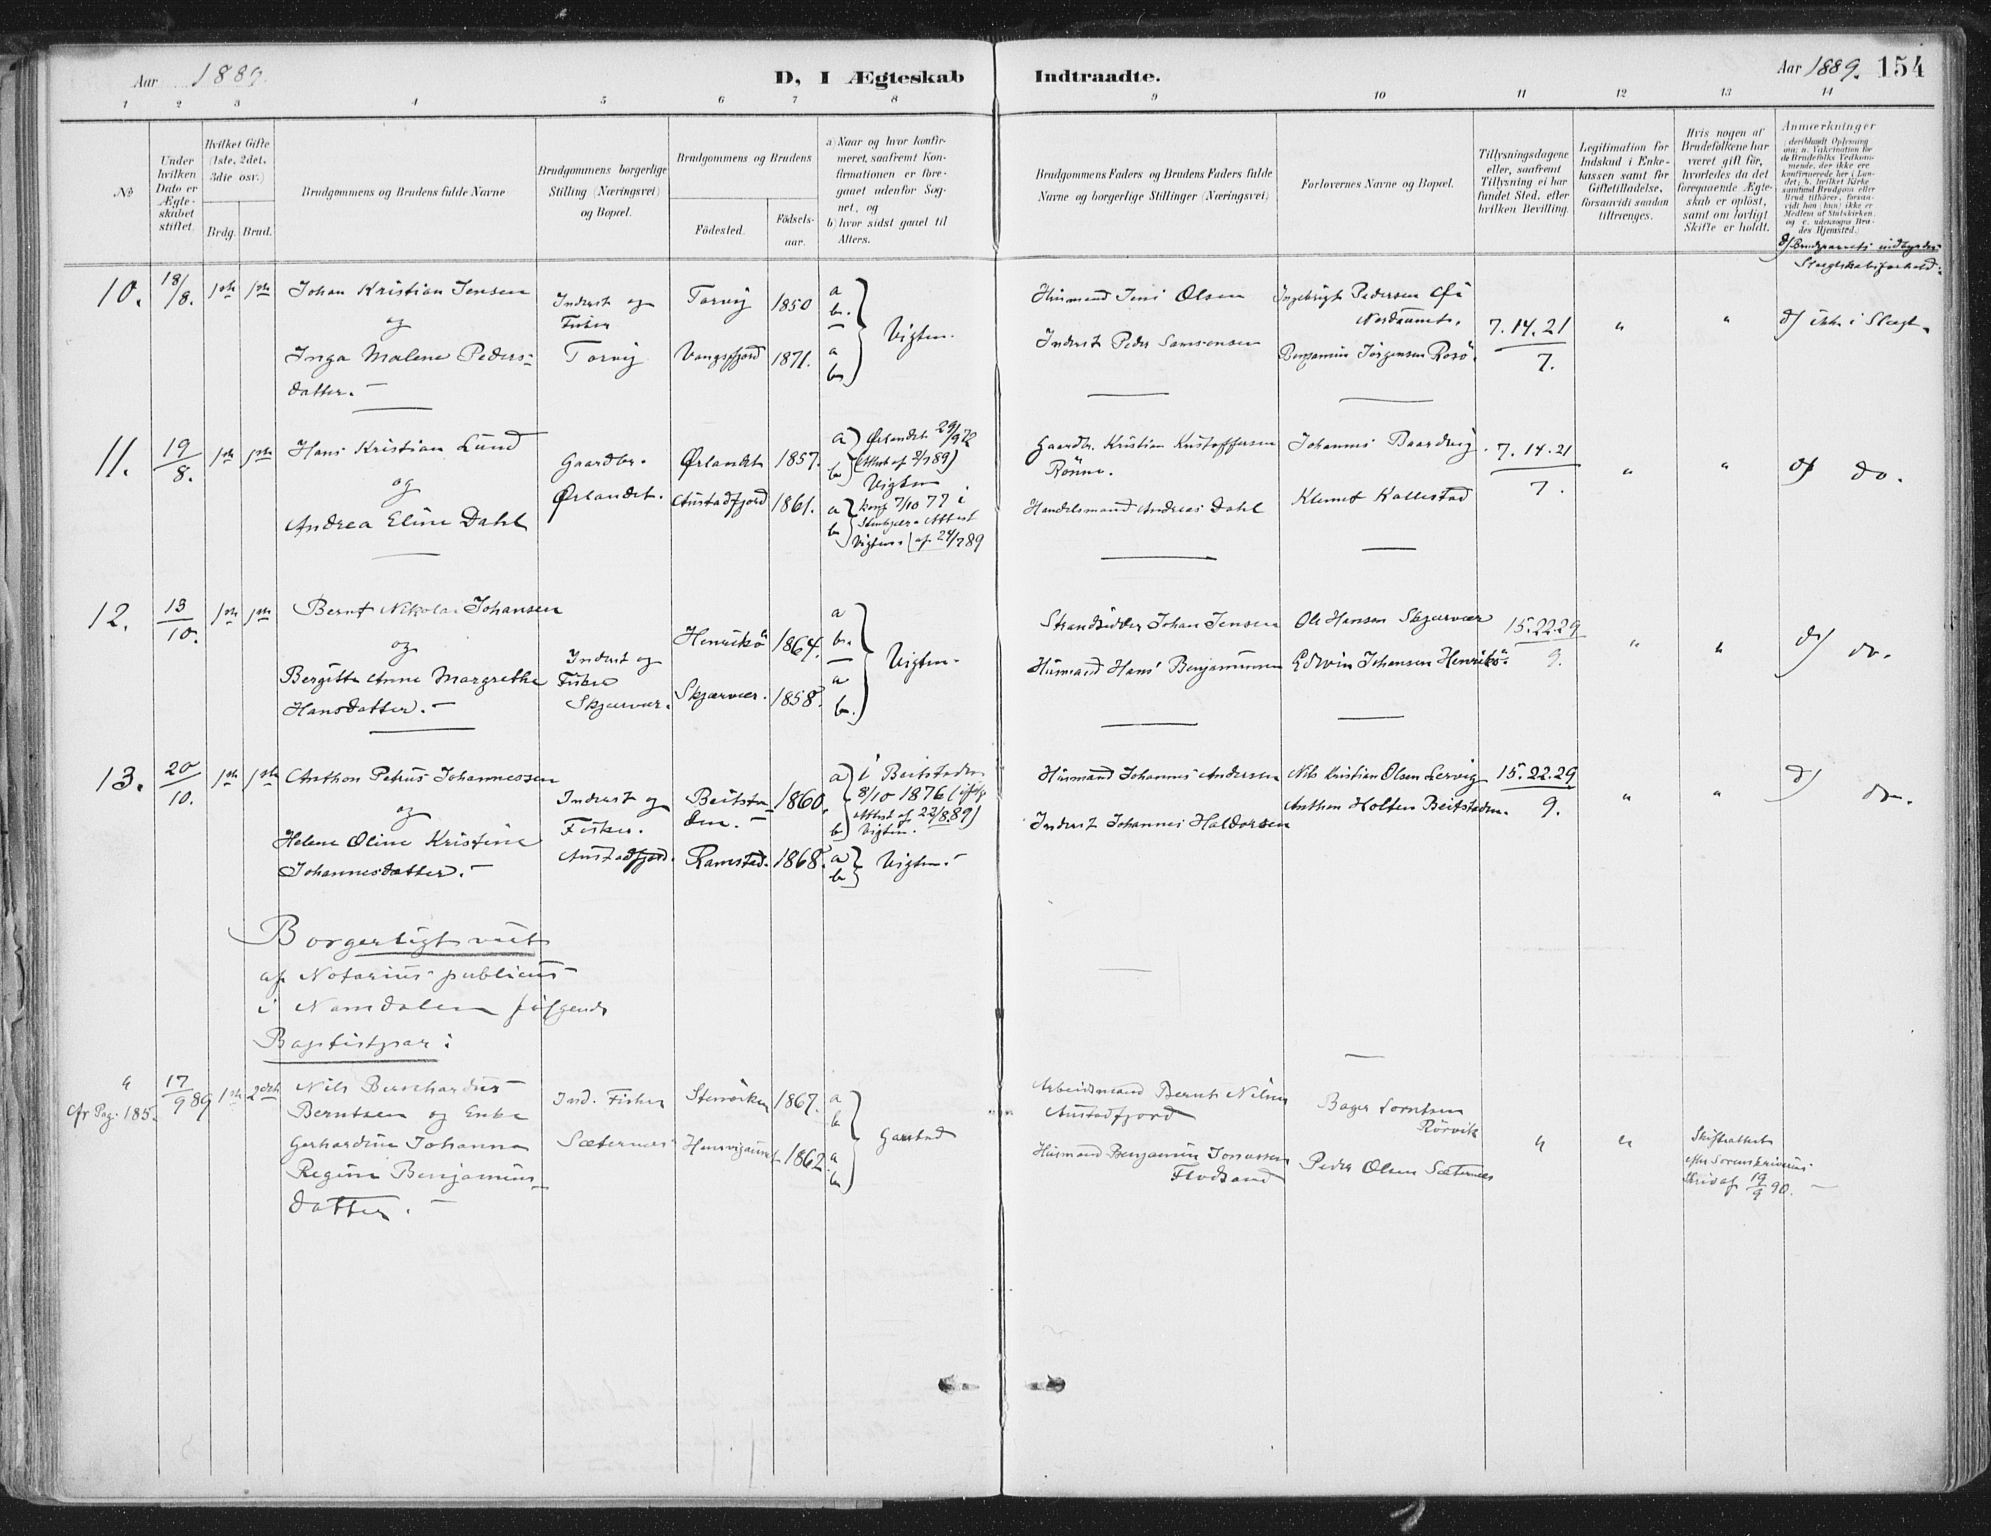 Aar 1889.
D, I Ægteskab
Indtraadte.
Aar 1889. 154
1 2 3 4 5 6 7 8 9 10 11 12 13 14
No
Under hvilken Dato er Ægteskabet stiftet.
Hvilket Gifte (1ste, 2det, 3die osv.)
Brdg. Brud.
Brudgommens og Brudens fulde Navne
Brudgommens borgerlige Stilling (Næringsvei) og Bopæl.
Brudgommens og Brudens
Fødested.
Fødselsaar.
a) Naar og hvor konfirmeret, saafremt Konfirmationen er foregaaet udenfor Sognet, og
b) hvor sidst gaaet til Alters.
Brudgommens Faders og Brudens Faders fulde Navne og borgerlige Stillinger (Næringsvei)
Forlovernes Navne og Bopæl.
Tillysningsdagene eller, saafremt Tillysning ei har fundet Sted, efter hvilken Bevilling.
Legitimation for Indskud i Enkekassen samt for Giftetilladelse, forsaavidt saadan tiltrænges.
Hvis nogen af Brudefolkene har været gift før, hvorledes da det foregaaende Ægteskab er opløst, samt om lovligt Skifte er holdt.
Anmærkninger
(deriblandt Oplysning om: a. Vakcination for de Brudefolks Vedkommende, der ikke ere konfirmerede her i Landet; b. hvilket Kirkesamfund Brudgom eller Brud tilhører, forsaavidt han (hun) ikke er Medlem af Statskirken; og c. udensogns Brudes Hjemsted.)
d) Brudeparrets indbyrdes
Slægtskabsforhold:
10. 18/8. 1ste 1ste Johan Kristian Jensen
og
Inga Malene Peders-
datter.
Inderst og
Fisker
Torvig
Torvig 1850
Vangsfjord 1871.
a
b.
a
b
Vigten.
Husmand Jens Olsen
Inderst Peder Samsonsen
Ingebrigt Pedersen
Benjamin Jørgensen Rosø.
7. 14. 21
7.
" "
d) ikke i Slægt.
11. 19/8. 1ste 1ste Hans Kristian Lund
og
Andrea Eline Dahl
Gaardbr.
Ørlandet.
Ørlandet 1857.
Austadfjord 1861.
a) Ørlandet 29/9 72
b) (Attest af 2/7 89)
Vigten
a konf 7/10 77 i
b Stenkjær Attest
Vigten. af 24/7 89
Gaardbr. Kristian Kristoffersen
Rønne.
Handelsmand Andreas Dahl
Johannes Baardvig
Klemet Kallestad
7. 14. 21
7.
" "
d) do.
12. 13/10. 1ste 1ste Bernt Nikolai Johansen
og
Bergitte Anne Margrethe
Hansdatter.
Inderst og
Fisker
Skjærvær.
Henriksø 1864.
Skjærvær. 1858.
a
b.
a
b.
Vigten.
Strandsidder Johan Jensen
Husmand Hans Benjaminsen
Ole Hansen Skjærvær
Edvin Johansen Henriksø.
15. 22. 29
9.
" "
d) do.
13. 20/10. 1ste 1ste Anthon Petrus Johannessen
og
Helene Oline Kristine
Johannesdatter.
Inderst og
Fisker.
Austadfjord.
Beitsta-
den. 1860.
Ramstad. 1868.
a i Beitstaden
8/10 1876 (ifølge
Attest af 22/8 89)
b Vigten.
a
b Vigten.
Husmand Johannes Andersen
Inderst Johannes Haldorsen
Nils Kristian Olsen Lervig
Anthon Holten Beitstaden.
15. 22. 29
9.
" "
d) do.
Borgerligt viet
af Notarius publicus
i Namdalen følgende
Baptistpar:
" 17/9 89 1ste 2det
cfr Pag. 185.
Nils Bernhardus
Berntsen og Enke
Gerhardine Johanna
Regine Benjamins-
datter.
Ind. Fisker
Sæternes
1867.
1862.
a
b
a
b
Garstad
Arbeidsmand Bernt Nilsen
Austadfjord
Husmand Benjamin Jonassen
Flodsand
Bager Lorntsen
Rørvik
Peder Olsen Sæternes
" "
Skifteattest
efter Sorenskriverens
Skriv af 19/9 90.